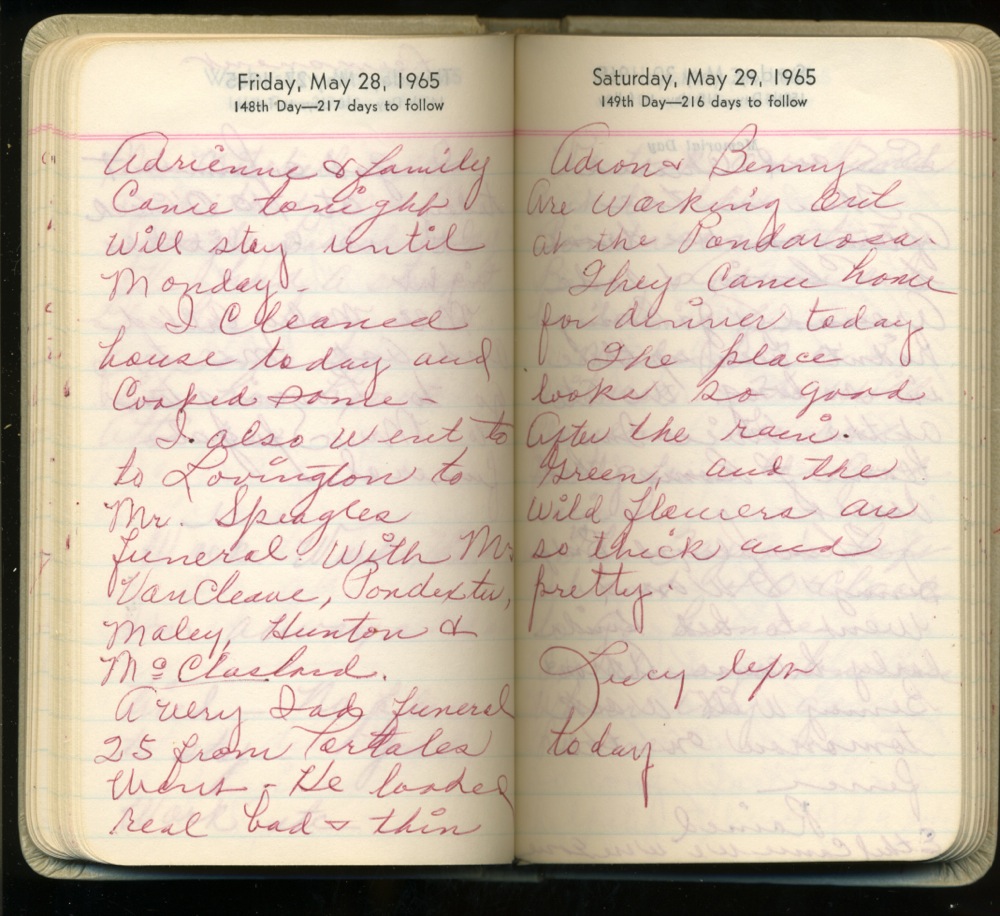 Friday, May 28, 1965
148th Day—217 days to follow
Adrienne & family
Came tonight
Will stay until
Monday.
I Cleaned
house today and
Cooked some -
I also went to
to Lovington to
Mr. Speagles
funeral. With Mr.
VanCleave, Pondexter,
Maley, Hunton &
Mc
A very Sad funeral
25 from Portales
Went - He looked
real bad & thin
Saturday, May 29, 1965
149th Day—216 days to follow
& Benny
Are Working out
at the Pondarosa.
They came home
for dinner today
The place
looks so good
After the rain.
Green, and the
Wild flowers are
so thick and
pretty.
Lucy left
today